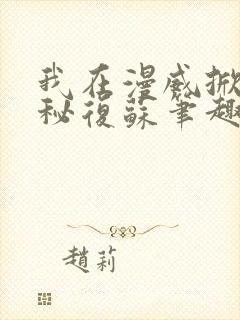 我在漫威掀
秘復蘇筆趣
趙莉